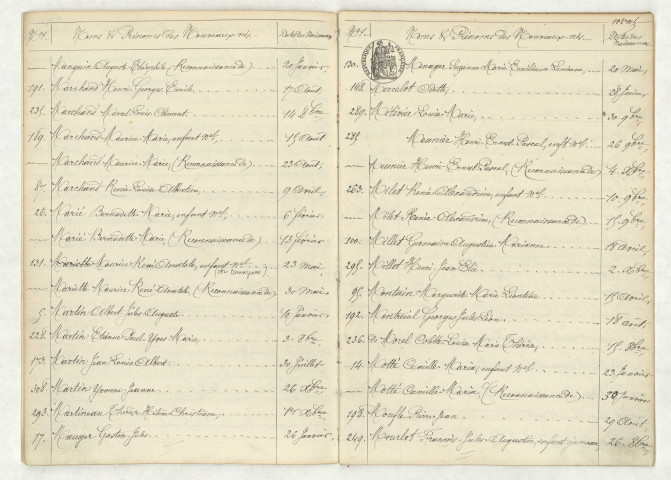 Nos. Noms & Prénoms des Nouveaux-nés. Dates des Naissances
— Mauguin Auguste Théophile (Reconnaissance de) 20 Janvier,
191. Marchand Henri Georges Emile, 17 Août,
235. Marchand Marcel Louis Clément, 14 8bre
189. Marchand Maurice Marie, enfant Nel, 15 Août,
— Marchand Maurice Marie (Reconnaissance de) 23 Août,
87. Marchand Renée Louise Albertine, 9 Avril,
26. Marié Bernadette Marie, enfant Nel, 6 février
— Marié Bernadette Marie (Reconnaissance de) 13 février
131. Mariette Maurice René Anatole, enfant Nel 23 Mai,
— Mariette Maurice René Anatole, (Reconnaissance de) 30 Mai,
5. Martin Albert Jules Auguste 10 janvier,
228. Martin Etienne Paul Yves Marie, 3. 8bre,
172. Martin Jean Louis Albert. 30 Juillet
308. Martin Yvonne Jeanne 26 Xbre
293. Martineau Hélène Christiane,
17. Mauger Gaston Jules. 26 Janvier,
Nos. Noms & Prénoms des Nouveaux-nés. Dates des Naissances
130. Menager Suzanne Marie Emilienne 20 Mai,
148. Mercelot Odette, 28 Juin,
289. Métivier Louis Marie, 30 9bre
285 Meunier Henri Ernest Pascal, enft Nel 26 9bre
— Meunier Henri Ernest Pascal, (Reconnaissance de) 4. Xbre
263. Milet Renée Alexandrine, enfant Nel. 10. 9bre,
— Milet Renée Alexandrine, (Reconnaissance de) 15. 9bre
100. Millet Germaine Augustine Marianne 18 Avril,
295. Millot Henri Jean Elie 2. Xbre
95. Montain Marguerite Marie Léontine 15 Avril,
192. Montreuil Georges Jules Léon 18 Août,
236. de Morel Odette Louise Marie Thérèse, 15. 8bre
14. Motté Camille Marie, enfant Nel. 23 Janvier
— Motté Camille Marie, (Reconnaissance de) 30 Janvier
198. Moufle Pierre Jean 29 Août,
249. Mourlot François Jules Augustin, enfant 26. 8bre,